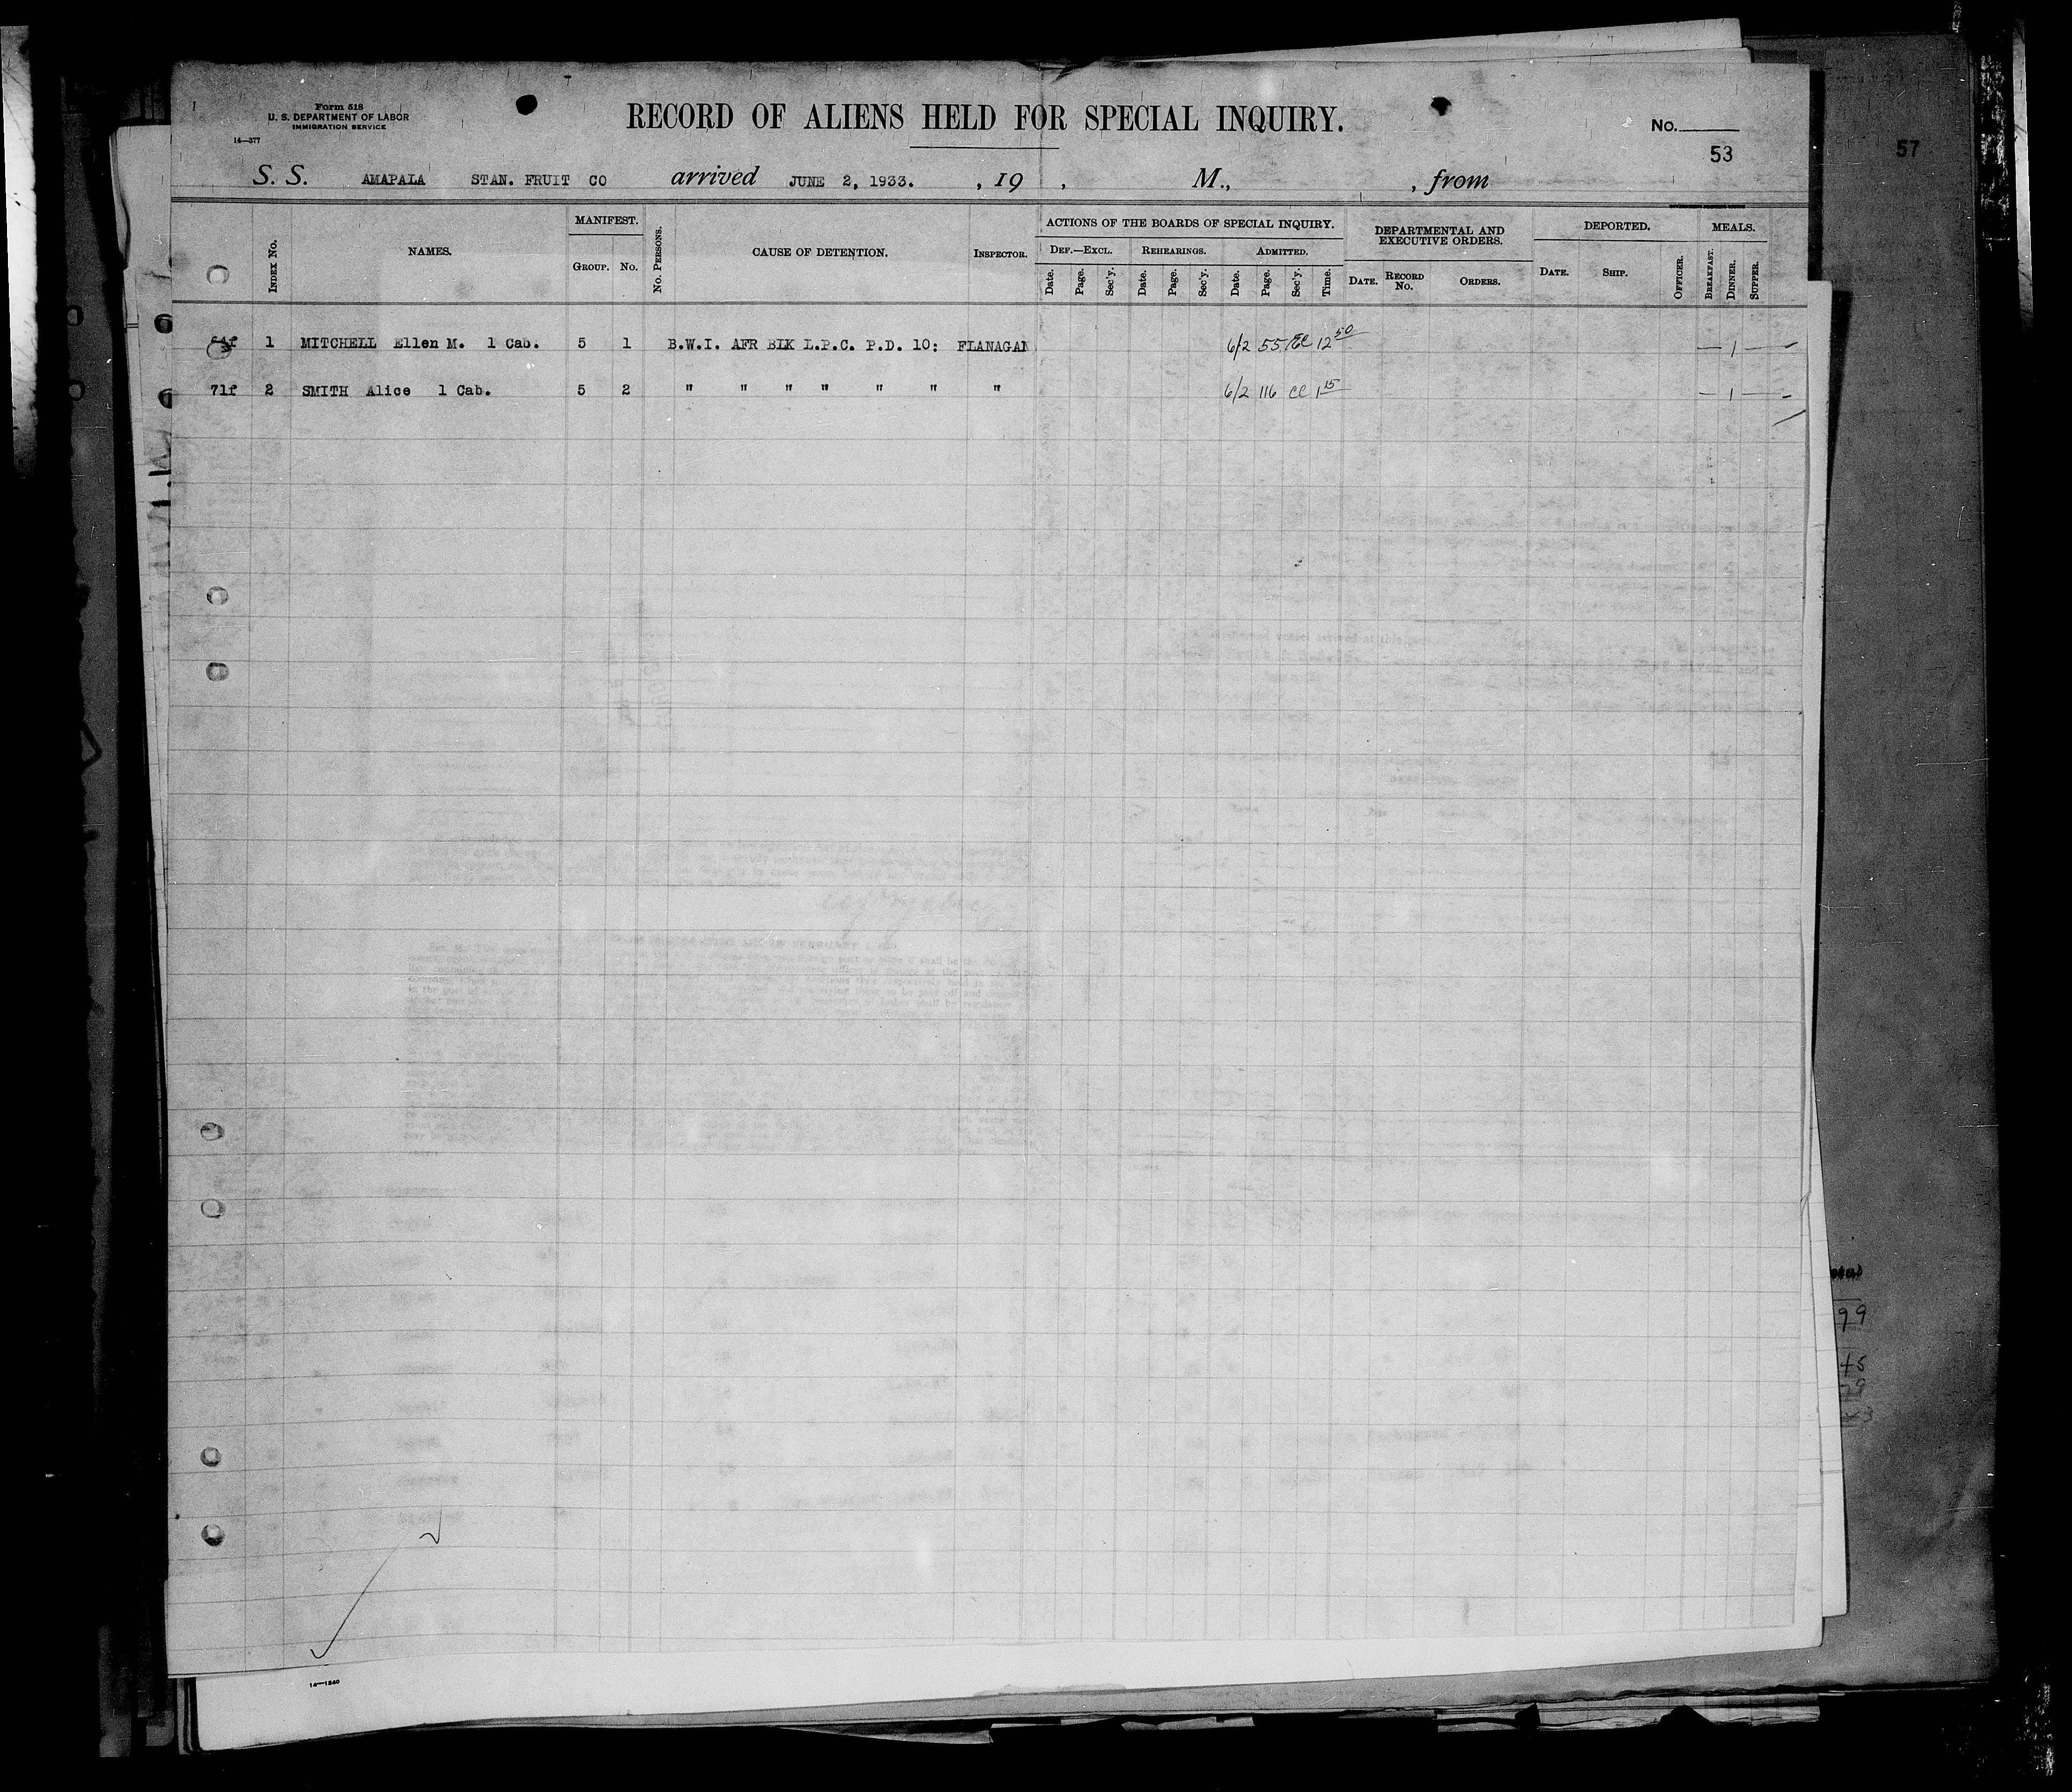 Form 518
U. S. DEPARTMENT OF LABOR
IMMIGRATION SERVICE
14—377
RECORD OF ALIENS HELD FOR SPECIAL INQUIRY.
No.
53
57
S. S. AMAPALA STAN. FRUIT CO arrived JUNE 2, 1933. , 19 , M., , from
MANIFEST. ACTIONS OF THE BOARDS OF SPECIAL INQUIRY. DEPARTMENTAL AND EXECUTIVE ORDERS. DEPORTED. MEALS.
INDEX No. NAMES. GROUP. No. No. PERSONS. CAUSE OF DETENTION. INSPECTOR. DEF.—EXCL. REHEARINGS. ADMITTED.
Date. Page. Sec'y. Date. Page. Sec'y. Date. Page. Sec'y. Time. DATE. RECORD No. ORDERS. DATE. SHIP. OFFICER. BREAKFAST. DINNER. SUPPER.
1 MITCHELL Ellen M. 1 Cab. 5 1 B.W.I. AFR BLK L.P.C. P.D. 10: FLANAGAN 6/2 55 12 50 — 1 —
71f 2 SMITH Alice 1 Cab. 5 2 " " " " " " " 6/2 116 CC 1 15 — 1 —
99
14—1240